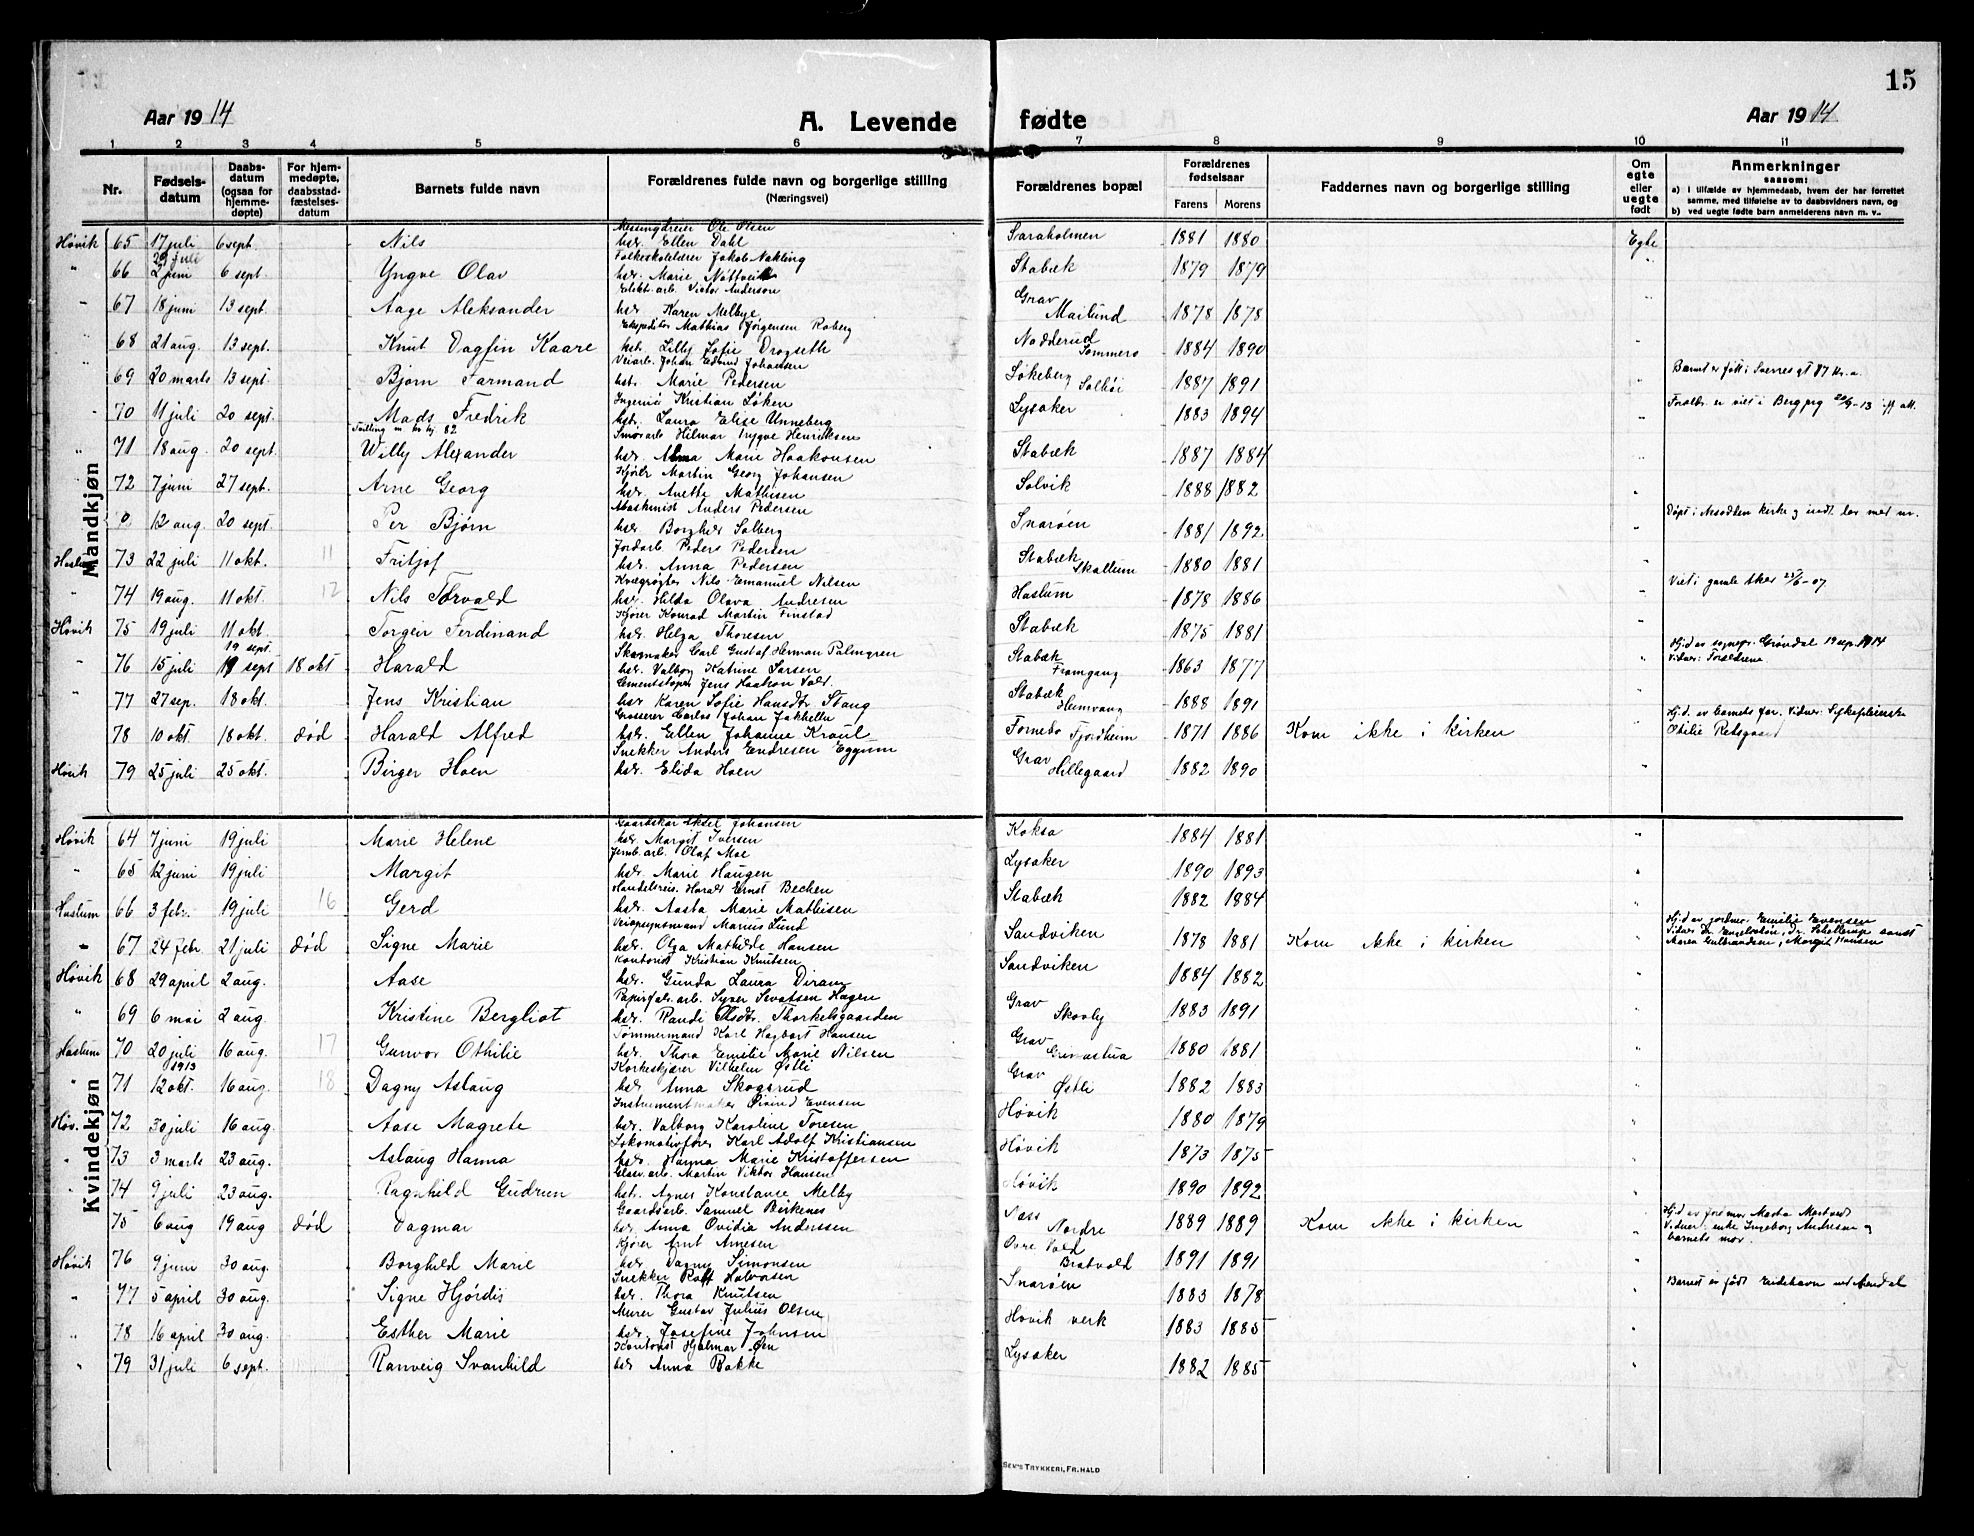 15
Aar 1914 A. Levende fødte Aar 1914
1 2 3 4 5 6 7 8 9 10 11
Nr.
Fødsels-datum
Daabs-datum (ogsaa for hjemme-døpte)
For hjem-medøpte, daabsstad-fæstelses-datum
Barnets fulde navn
Forældrenes fulde navn og borgerlige stilling (Næringsvei)
Forældrenes bopæl
Forældrenes fødselsaar
Farens Morens
Faddernes navn og borgerlige stilling
Om egte eller uegte født
Anmerkninger
saasom:
a) i tilfælde av hjemmedaab, hvem der har forrettet samme, med tilføielse av to daabsvidners navn, og
b) ved uegte fødte barn anmelderens navn m. v.
Mandkjøn
Messingdreier Ole Olsen
Høvik 65 17 juli 6 sept. Nils hst. Ellen Dahl Saraholmen 1881 1880 Egte
29 juli Folkeskolelærer Jakob Nakling
" 66 2 juni 6 sept. Yngve Olav hst. Marie Stabæk 1879 1879 "
Elekt. arb. Victor Anderson
" 67 18 juni 13 sept. Aage Aleksander hst. Karen Melbye Grav Mailund 1878 1878 "
Ekspeditør Mathias Jørgensen Roberg
" 68 21 aug. 13 sept. Knut Dagfin Kaare hst. Lilly Sofie Drogseth Nadderud Sommero 1884 1890 "
Veiarb. Johan Edvind Johansen
" 69 20 marts 13 sept. Bjørn Farmand hst. Marie Pedersen Løkeberg Solhøi 1887 1891 " Barnet er født i Sverres gt 87 Kr.a.
Ingeniør Kristian Løken
" 70 11 juli 20 sept. Mads Fredrik hst. Laura Elise Unneberg Lysaker 1883 1894 " Foræld. er viet i Berg prg 20/9-13 att.
Tvilling m
Smørarb. Hilmar Trygve Henriksen
" 71 18 aug. 20 sept. Willy Alexander hst. Alma Marie Haakonsen Stabæk 1887 1884 "
Kjører Martin Georg Johansen
72 7 juni 27 sept. Arne Georg hst. Anette Mathisen Solvik 1888 1882 "
Maskinist Anders Pedersen
0 12 aug. 20 sept. Per Bjørn hst. Borghild Solberg Snarøen 1881 1892 " Døpt i Nesodden kirke
Jordarb. Peder Pedersen
Haslum 73 22 juli 11 okt. 11 Fritjof hst. Anna Pedersen Stabæk Skallum 1880 1881 "
Kvægrøgter Nils Emanuel Nilsen
" 74 19 aug. 11 okt. 12 Nils Torvald hst. Hilda Olava Andresen Haslum 1878 1886 " Viet i gamle Aker 23/6-07
Kjører Konrad Martin Finstad
Høvik 75 19 juli 11 okt. Torgeir Ferdinand hst. Helga Thoresen Stabæk 1875 1881 "
19 sept. Skomaker Carl Gustaf Herman Palmgren
" 76 15 juli sept 18 okt Harald hst. Valborg Katrine Larsen Stabæk Framgang 1863 1877 " Hj.d av sognepr. Grøndal 19 sep. 1914 Vidner: Forældrene
Cementstøper Jens Haakon Vold
" 77 27 sep. 18 okt. Jens Kristian hst. Karen Sofie Hansdtr Stang Stabæk Hemvang 1888 1891 "
Grosserer Carlos Johan Fakhelln
78 10 okt. 18 okt. død Harald Alfred hst. Ellen Johanne Kraul Fornebo Fjordheim 1871 1886 Kom ikke i kirken " Hj.d. av barnets far. Vidner:
Snekker Anders Endresen Eggum
Høvik 79 25 juli 25 okt. Birger Hoen hst. Elida Hoen Grav Hillegaard 1882 1890 "
Kvindekjøn
Gaardskar Aksel Johansen
Høvik 64 7 juni 19 juli Marie Helene hst. Margit Iversen Koksa 1884 1881 "
Jernb. arb. Olaf Moe
" 65 12 juni 19 juli Margit hst. Marie Haugen Lysaker 1890 1893 "
Handelsreis. Harald Ernst Bechen
Haslum 66 3 febr. 19 juli 16 Gerd hst. Aasta Marie Mathisen Stabæk 1882 1884 "
Veiopsynsmand Marius Lund
" 67 24 febr 21 juli død Signe Marie hst. Olga Mathilde Hansen Sandviken 1878 1881 Kom ikke i kirken " Hj.d av jordmor Emilie Evensen Vidner Dr. Engelschiøn, Dr. Schellerup samt Maren Gulbrandsen, Margit Hansen
Kontorist Kristian Knutsen
Høvik 68 29 april 2 aug. Aase hst. Gunda Laura Sandviken 1884 1882 "
Papirfab. arb. Syver Sevatsen Hagen
" 69 6 mai 2 aug Kristine Bergliot hst. Randi Olsdtr. Thorkelsgaarden Grav Skovly 1883 1891 "
Tømmermand Karl Hagbart Hansen
Haslum 70 20 juli 16 aug. 17 Gunvor Othilie hst. Thora Emelie Marie Nilsen Grav Grinastua 1880 1881 "
1913 Korkeskjærer Vilhelm Østli
" 71 12 okt. 16 aug. 18 Dagny Aslaug hst. Anna Skogsrud Grav Østli 1882 1883 "
Instrumentmaker Øivind Evensen
Høv. 72 30 juli 16 aug. Aase Magrete hst. Valborg Karoline Toresen Høvik 1880 1879 "
Lokomotivfører Karl Adolf Kristiansen
" 73 3 marts 23 aug. Aslaug Hanna hst. Hanna Marie Kristoffersen Høvik 1873 1875 "
Glasv. arb. Martin Viktor Hansen
" 74 9 juli 23 aug. Ragnhild Gudrun hst. Agnes Konstanse Melby Høvik 1890 1892 "
Gaardsarb. Samuel Birkenes
75 6 aug 19 aug død Dagmar hst. Anna Ovidia Anderssen Næss Nordre 1889 1889 Kom ikke i kirken " Hj.d av jordmor Marta Vidner, enke Ingeborg Andresen og barnets mor.
Kjører Arnt Arnesen
Høvik 76 9 juni 30 aug. Borghild Marie hst. Dagny Simonsen Øvre Vold Bratvold 1891 1891 "
Snekker Rolf Halvorsen
" 77 5 april 30 aug. Signe Hjørdis hst. Thora Knutsen Snarøen 1883 1878 " Barnet er født Eidehavn ved Arendal
Murer Gustav Julius Olsen
" 78 16 april 30 aug. Esther Marie hst. Josefine Johnsen Høvik verk 1883 1885 "
Kontorist Hjalmar Øen
" 79 31 juli 6 sept. Ranveig Svanhild hst. Anna Bakke Lysaker 1882 1885 "
SEM'S TRYKKERI, FR.HALD